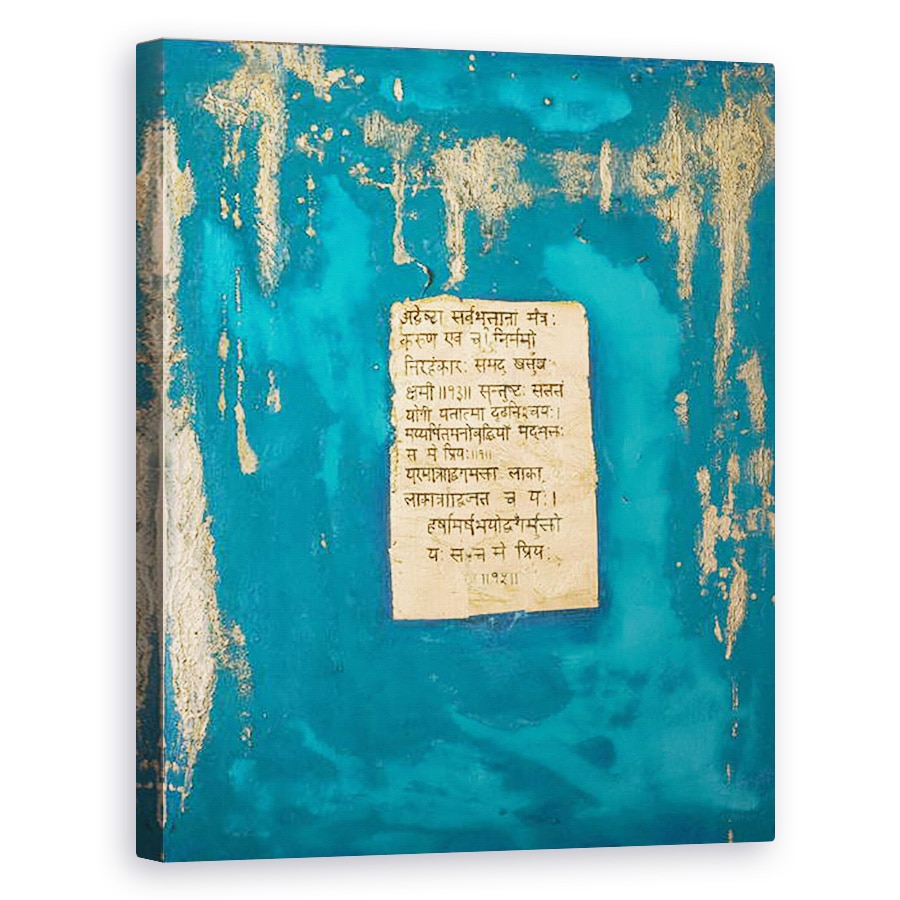 अद्वेष्टा सर्वभूतानां मैत्र:
करुण एव च निर्ममो
निरहंकार: समदु खसुख
क्षमी ॥१३॥ सन्तुष्ट: सततं
योगी यतात्मा दृढनिश्चय:।
मय्यर्पितमनोबुद्धियो मद्भक्त:
स मे प्रिय:॥
लोकान्नोद्विजते च य:।
हर्षामर्षभयोद्वेगैर्मुक्तो
य: स च मे प्रिय:
॥१५॥